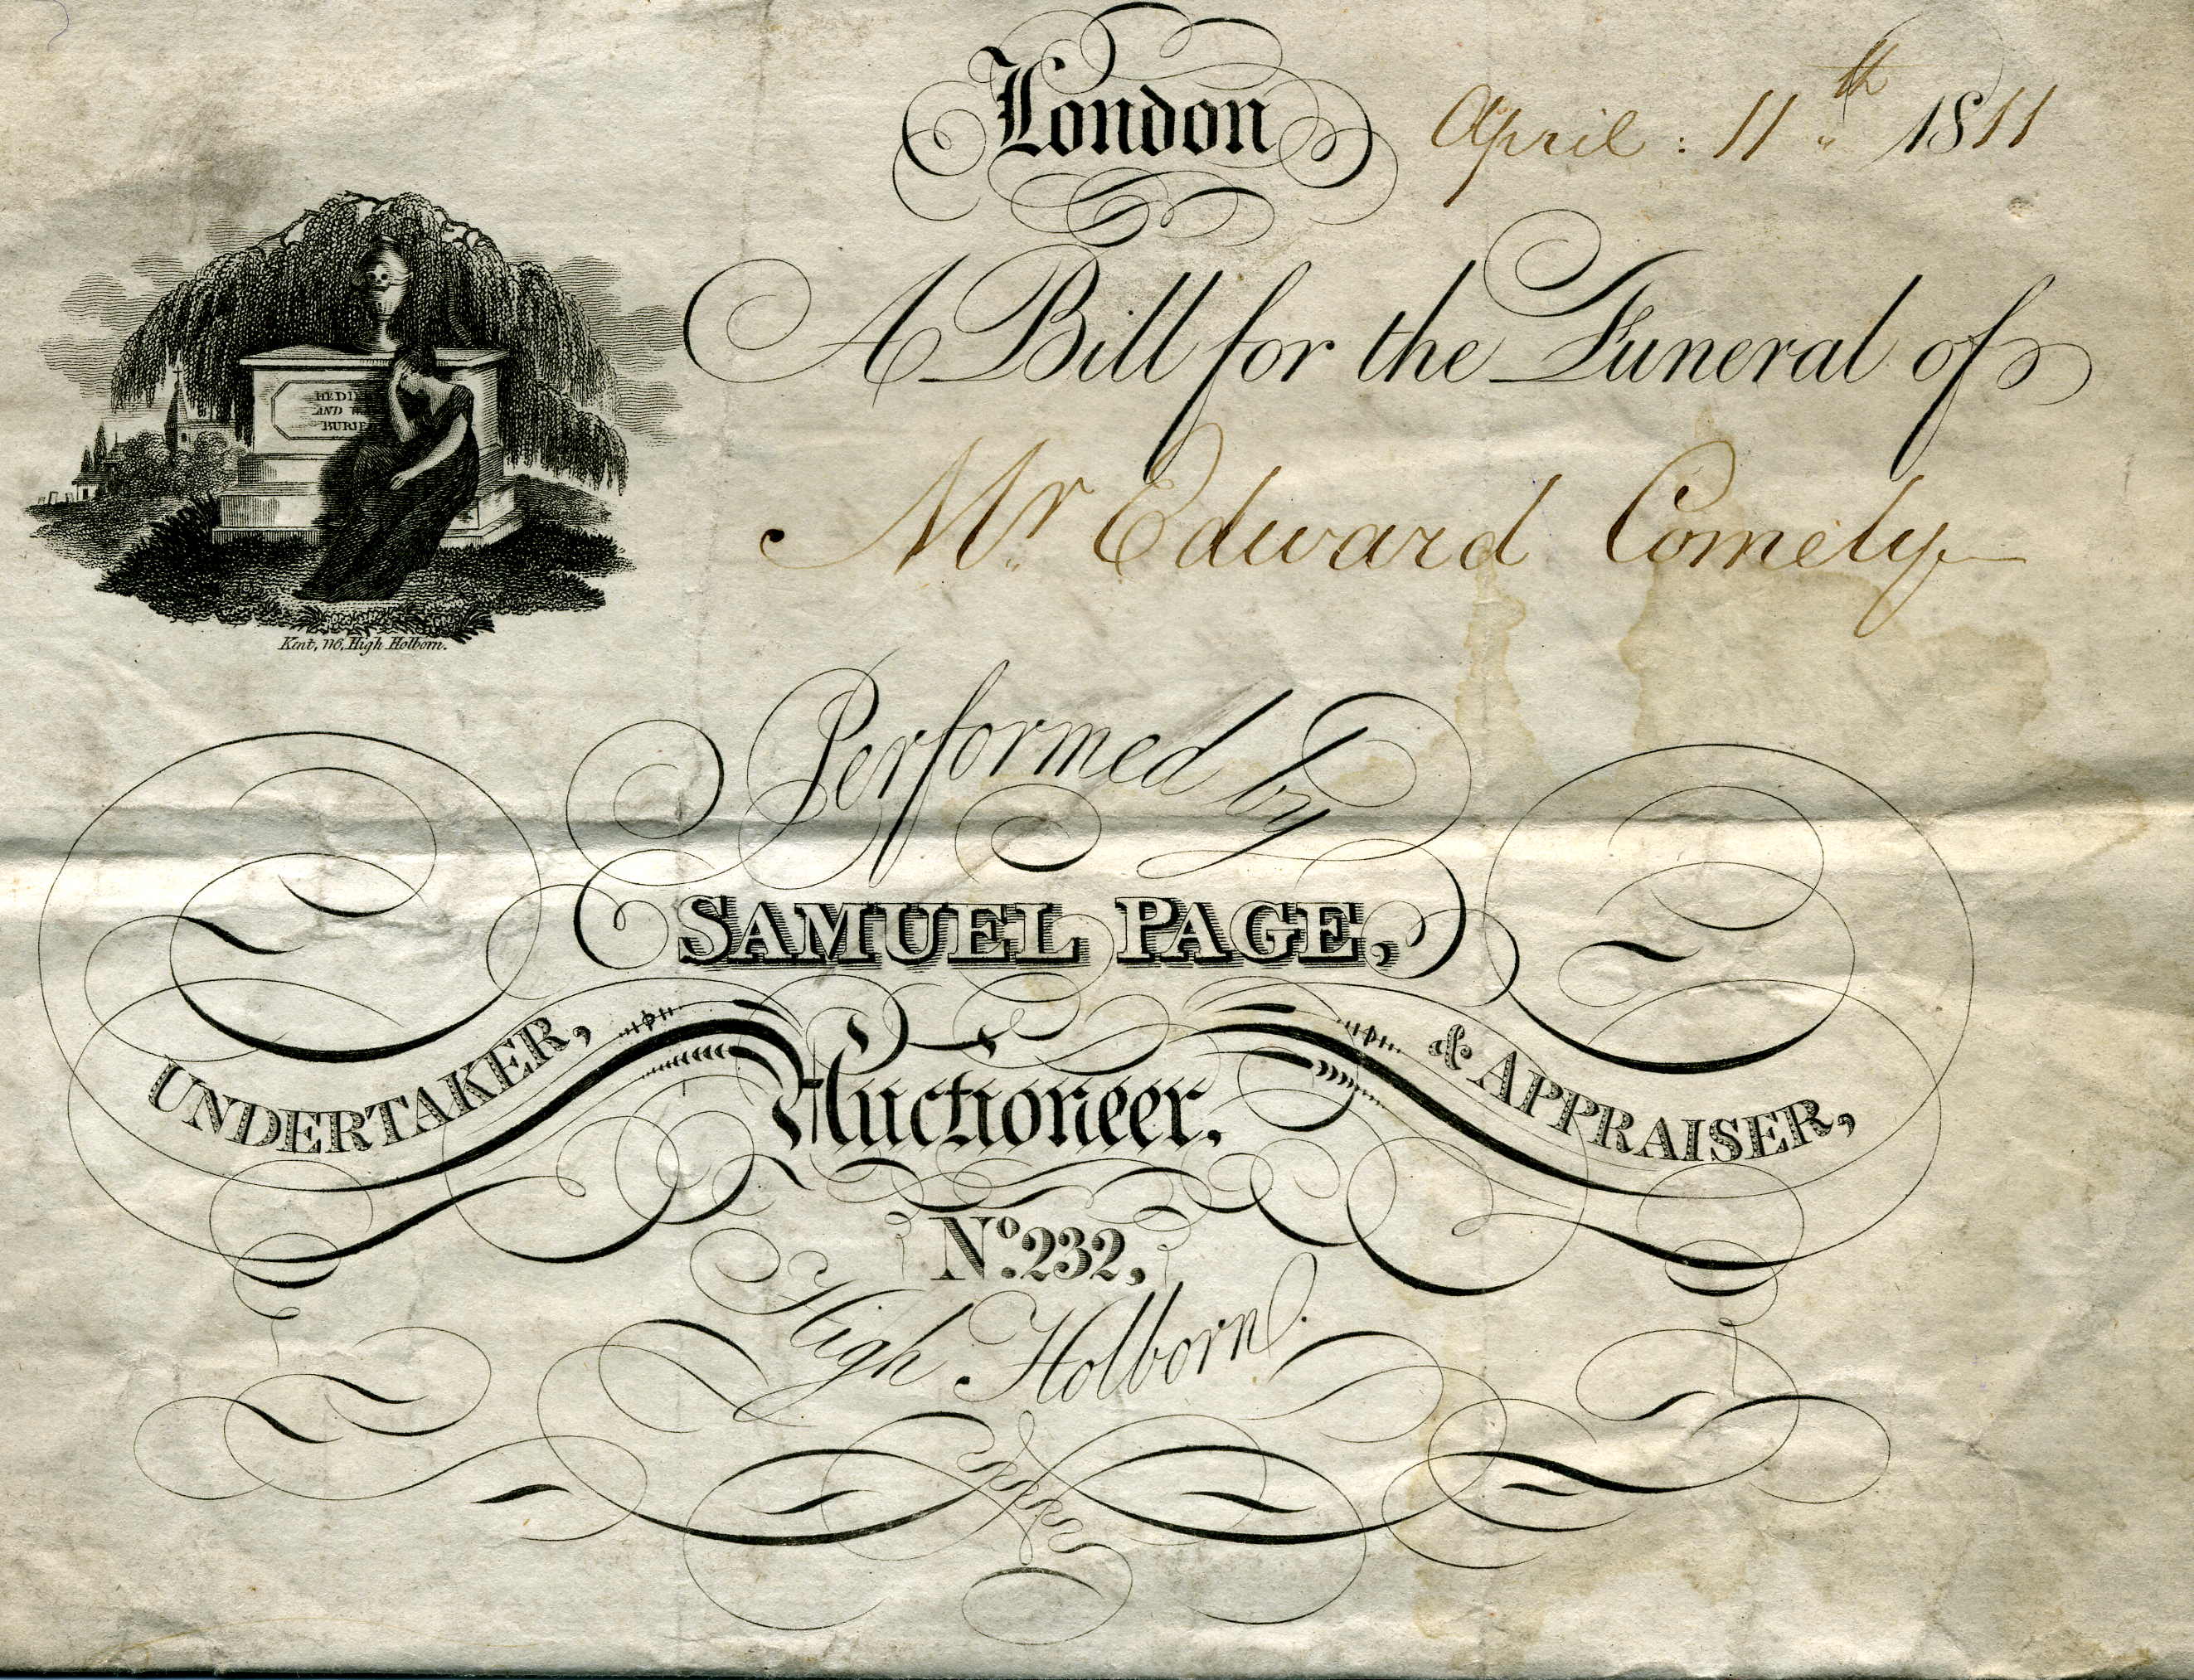 London April : 11th 1811
A Bill for the Funeral of
Mr Edward Comely
HEDIE
AND W
BURIE
Kent, 116, High Holborn.
Performed by
SAMUEL PAGE,
UNDERTAKER, Auctioneer. & APPRAISER,
No. 232,
High Holborn.